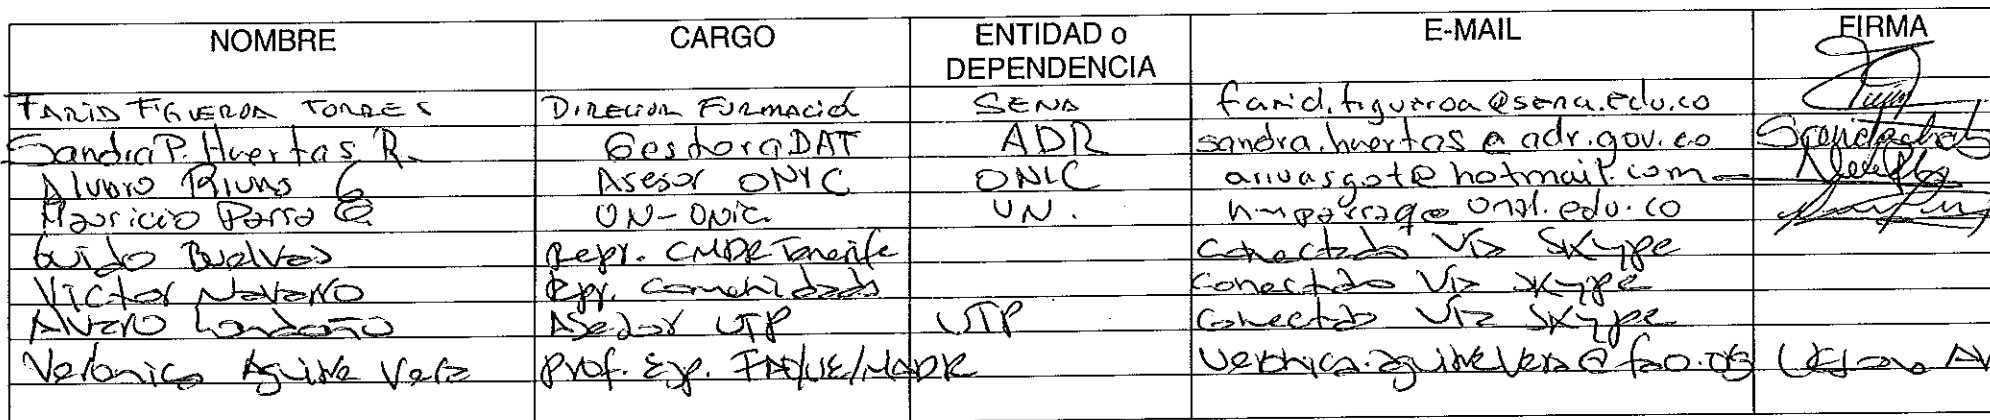 NOMBRE CARGO ENTIDAD o DEPENDENCIA E-MAIL FIRMA
FARID FIGUEROA TORRES DIRECCION FORMACIÓ SENA farid.figueroa@sena.edu.co
Sandra P. Huertas R. Gestora DAT ADR sandra.huertas@adr.gov.co
Alvaro Rivas G Asesor ONIC ONIC arivasgot@hotmail.com
Mauricio Parra Q UN-ONIC UN.
Guido Buelvas Repr. CMDR Tenerife Conectado Via Skype
Victor Navarro Repr. Comunidads Conectado Via Skype
Alvaro Londoño Asesor UTP UTP Conectado Via Skype
Veronica Aguirre Vera Prof. Esp. FAO/UE/MADR veronica.aguirrevera@fao.org